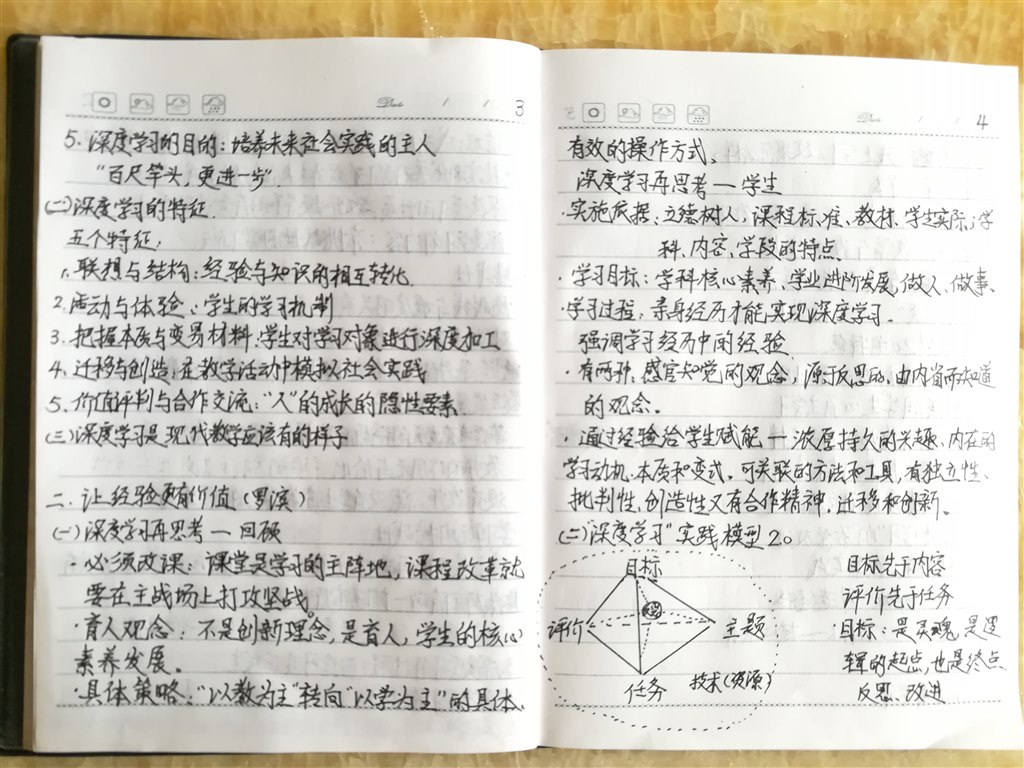 Date / / 3
5. 深度学习的目的：培养未来社会实践的主人
“百尺竿头，更进一步”.
(二)深度学习的特征.
五个特征：
1. 联想与结构：经验与知识的相互转化.
2. 活动与体验：学生的学习机制
3. 把握本质与变易材料：学生对学习对象进行深度加工
4. 迁移与创造：在教学活动中模拟社会实践
5. 价值评判与合作交流：“人”的成长的隐性要素
(三)深度学习是现代教学应该有的样子
二. 让经验更有价值（罗滨）
(一)深度学习再思考 — 回顾
· 必须改课：课堂是学习的主阵地，课程改革就
要在主战场上打攻坚战。
· 育人观念：不是创新理念，是育人，学生的核心
素养发展。
· 具体策略：“以教为主”转向“以学为主”的具体、
Date / / 4
有效的操作方式、
深度学习再思考 — 学生
· 实施依据：立德树人，课程标准、教材、学生实际；学
科、内容、学段的特点.
· 学习目标：学科核心素养、学业进阶发展、做人、做事、
· 学习过程：亲身经历才能实现深度学习.
强调学习经历中的经验
· 有两种：感官知觉的观念，源于反思的、由内省而知道
的观念。
· 通过经验给学生赋能 — 浓厚持久的兴趣、内在的
学习动机、本质和变式、可关联的方法和工具，有独立性、
批判性、创造性又有合作精神、迁移和创新。
(二)“深度学习”实践模型 2.0
目标
评价
主题
任务
技术(资源)
目标先于内容
评价先于任务
目标：是灵魂，是逻
辑的起点，也是终点
反思、改进